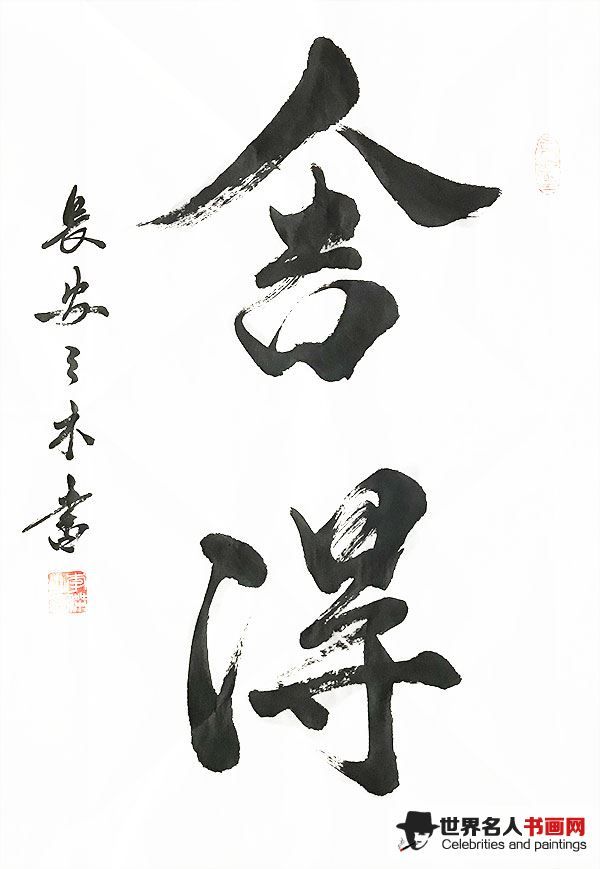 舍得
長安之木書
世界名人书画网
Celebrities and paintings